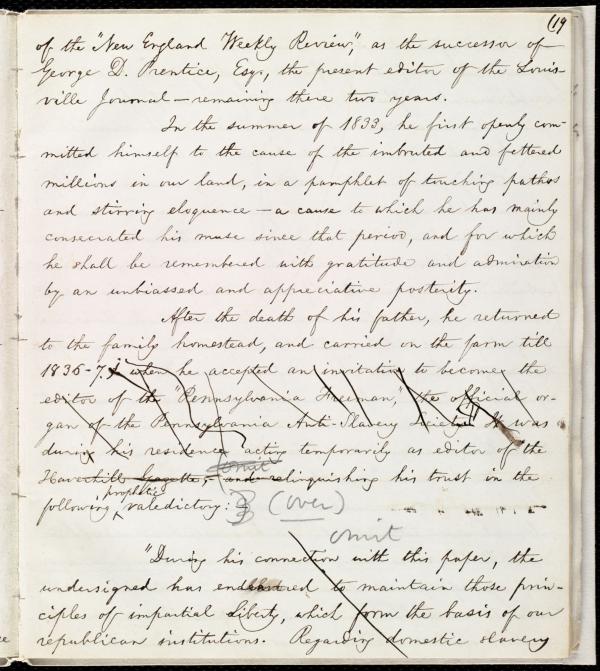 (19
of the "New England Weekly Review," as the successor of
George D. Prentice, Esq., the present editor of the Louis-
ville Journal — remaining there two years.
In the summer of 1833, he first openly com-
mitted himself to the cause of the imbruted and fettered
millions in our land, in a pamphlet of touching pathos
and stirring eloquence — a cause to which he has mainly
consecrated his muse since that period, and for which
he shall be remembered with gratitude and admiration
by an unbiassed and appreciative posterity.
After the death of his father, he returned
to the family homestead, and carried on the farm till
1836-7, when he accepted an invitation to become the
editor of the "Pennsylvania Freeman," the official or-
gan of the Pennsylvania Anti-Slavery Society. He was
during his residence acting temporarily as editor of the
omit
Haverhill Gazette, and relinquishing his trust in the
prophetic
following valedictory:
(over)
omit
"During his connection with this paper, the
undersigned has endeavored to maintain those prin-
ciples of impartial Liberty, which form the basis of our
republican institutions. Regarding domestic slavery